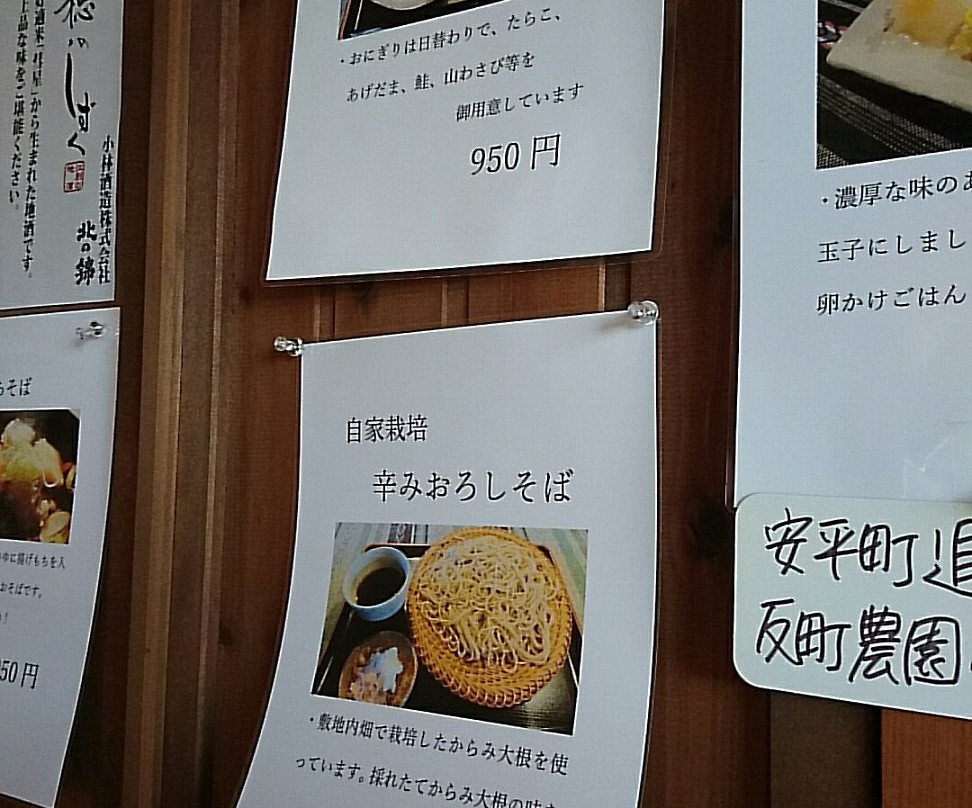 穂のしずく
から生まれた地酒です。
上品な味をご堪能ください。
小林酒造株式会社
北の錦
・おにぎりは日替わりで、たらこ、
あげだま、鮭、山わさび等を
御用意しています
950円
・濃厚な味の
玉子にしまし
卵かけごはん
そば
に揚げもちを入
おそばです。
50円
自家栽培
辛みおろしそば
・敷地内畑で栽培したからみ大根を使
っています。採れたてからみ大根の味を
安平町追
反町農園